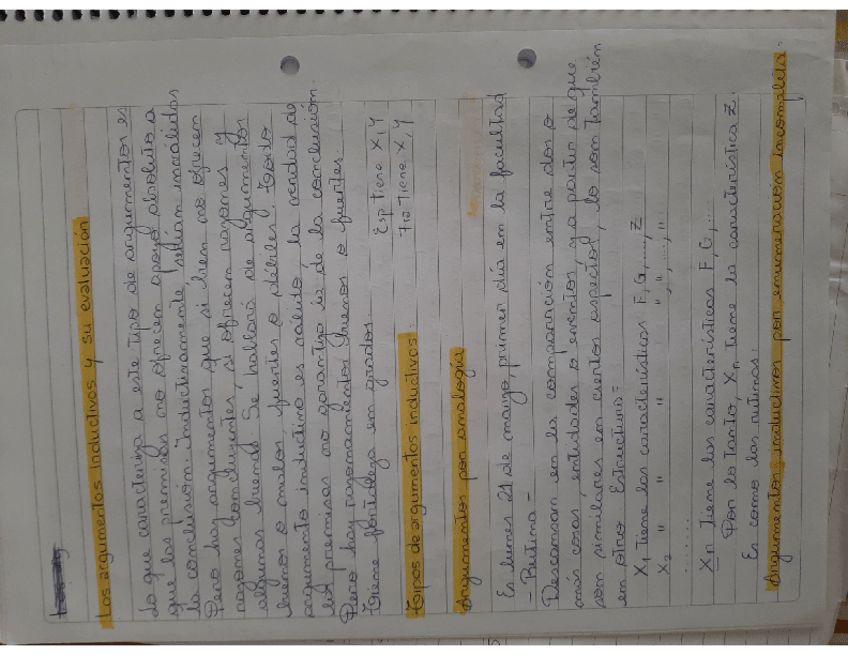 Los argumentos inductivos y su evaluación
Lo que caracteriza a este tipo de argumentos es
que las premisas no ofrecen apoyo absoluto a
la conclusión. Inductivamente serían inválidos
Pero hay argumentos que si bien no ofrecen
razones concluyentes, si ofrecen razones y
algunas buenas. Se hablará de argumentos
buenos o malos, fuertes o débiles. Todo
argumento inductivo es inválido, la verdad de
las premisas no garantiza la de la conclusión.
Pero hay razonamientos buenos o fuertes.
Tiene fortaleza en grados.
Esp Tiene X, Y
Tiene X, Y
Tipos de argumentos inductivos:
Argumentos por analogía
Es lunes 21 de marzo, primer día en la facultad
- Rutina -
Descansan en la comparación entre dos o
más cosas, entidades o eventos, y a partir de que
son similares en ciertos aspectos, lo son también
en otro Estructura:
X₁ Tiene las características F, G, ....., Z
X₂ " " " " , " , ...., "
.......
Xn Tiene las características F, G, ...
Por lo Tanto, Xn Tiene la característica Z.
Es como las rutinas.
Argumentos inductivos por enumeración incompleta: